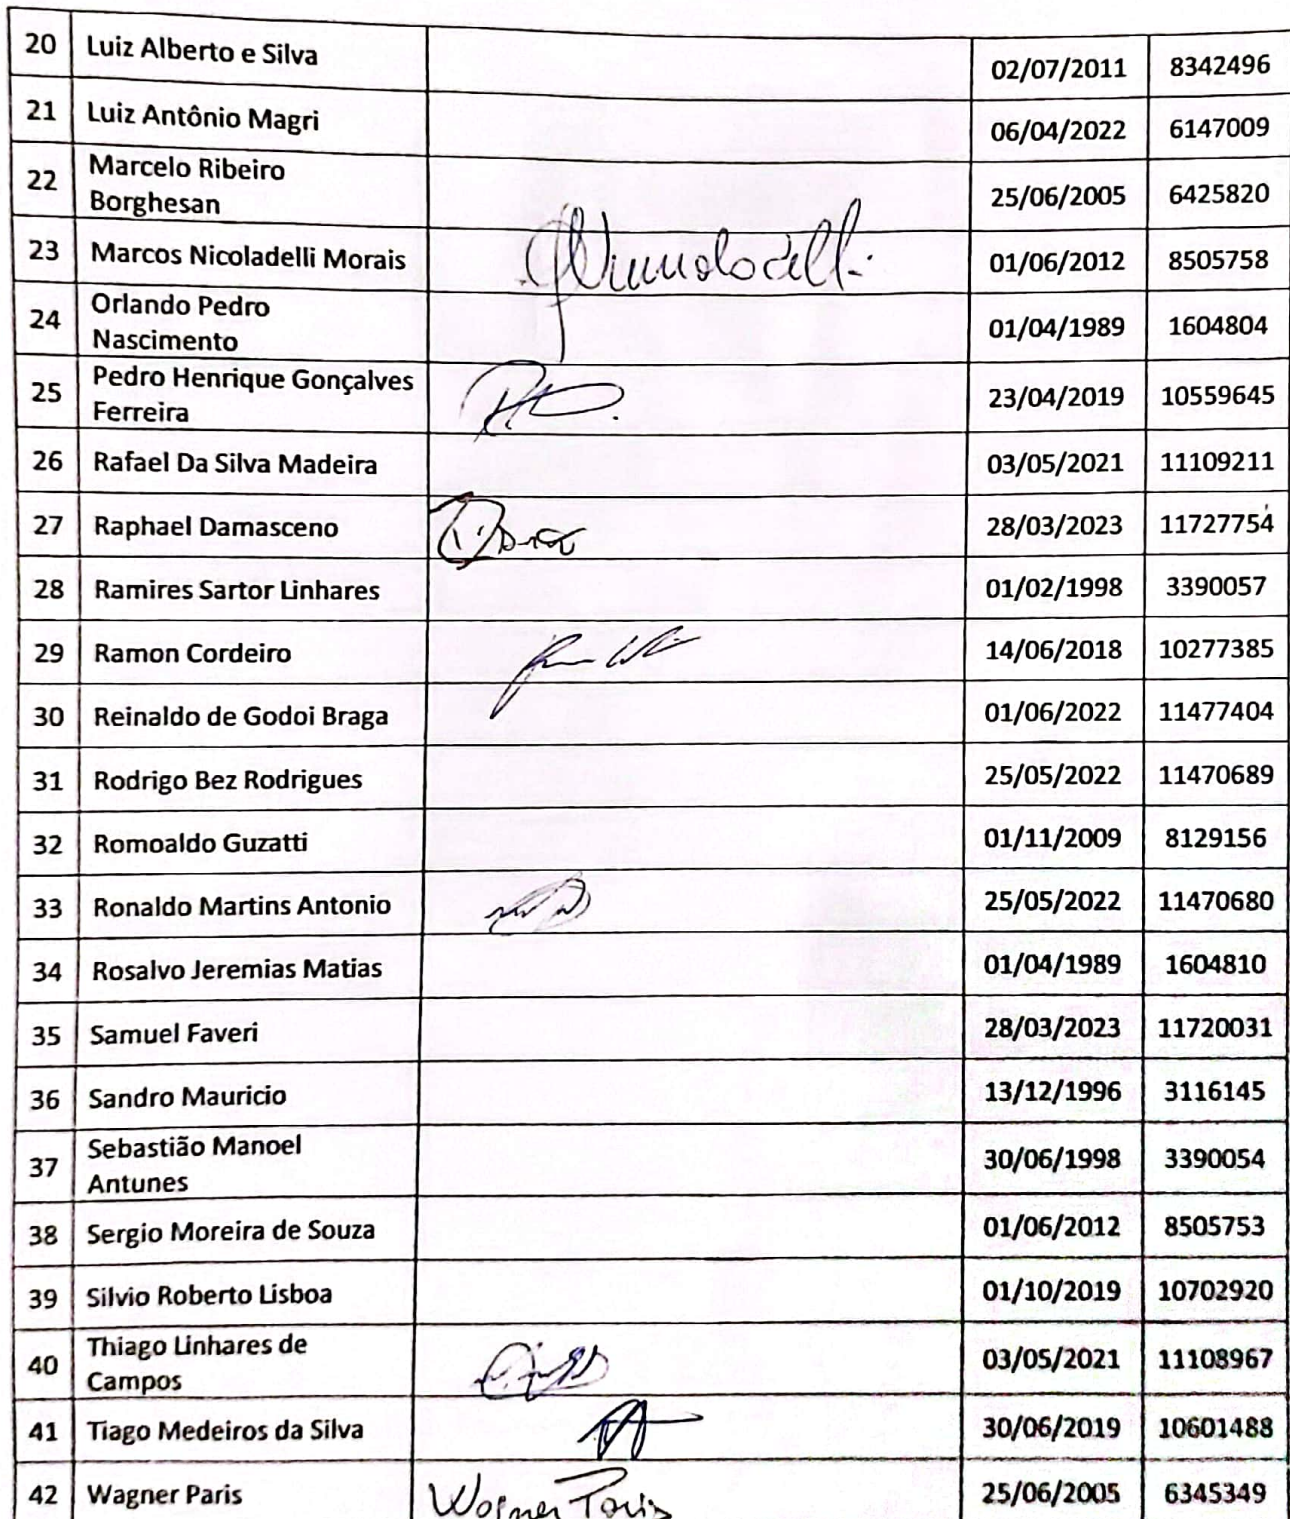 20 Luiz Alberto e Silva 02/07/2011 8342496
21 Luiz Antônio Magri 06/04/2022 6147009
22 Marcelo Ribeiro
Borghesan 25/06/2005 6425820
23 Marcos Nicoladelli Morais 01/06/2012 8505758
24 Orlando Pedro
Nascimento 01/04/1989 1604804
25 Pedro Henrique Gonçalves
Ferreira 23/04/2019 10559645
26 Rafael Da Silva Madeira 03/05/2021 11109211
27 Raphael Damasceno 28/03/2023 11727754
28 Ramires Sartor Linhares 01/02/1998 3390057
29 Ramon Cordeiro 14/06/2018 10277385
30 Reinaldo de Godoi Braga 01/06/2022 11477404
31 Rodrigo Bez Rodrigues 25/05/2022 11470689
32 Romoaldo Guzatti 01/11/2009 8129156
33 Ronaldo Martins Antonio 25/05/2022 11470680
34 Rosalvo Jeremias Matias 01/04/1989 1604810
35 Samuel Faveri 28/03/2023 11720031
36 Sandro Mauricio 13/12/1996 3116145
37 Sebastião Manoel
Antunes 30/06/1998 3390054
38 Sergio Moreira de Souza 01/06/2012 8505753
39 Silvio Roberto Lisboa 01/10/2019 10702920
40 Thiago Linhares de
Campos 03/05/2021 11108967
41 Tiago Medeiros da Silva 30/06/2019 10601488
42 Wagner Paris Wagner Paris 25/06/2005 6345349